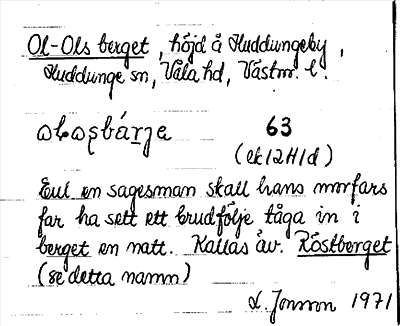 Ol-Ols berget, höjd å Huddungeby,
Huddunge sn, Våla hd, Västm. l.
63
(ek 12H1d)
Enl en sagesman skall hans morfars
far ha sett ett brudfölje tåga in i
berget en natt. Kallas äv. Röstberget
(se detta namn)
L. Jonsson 1971